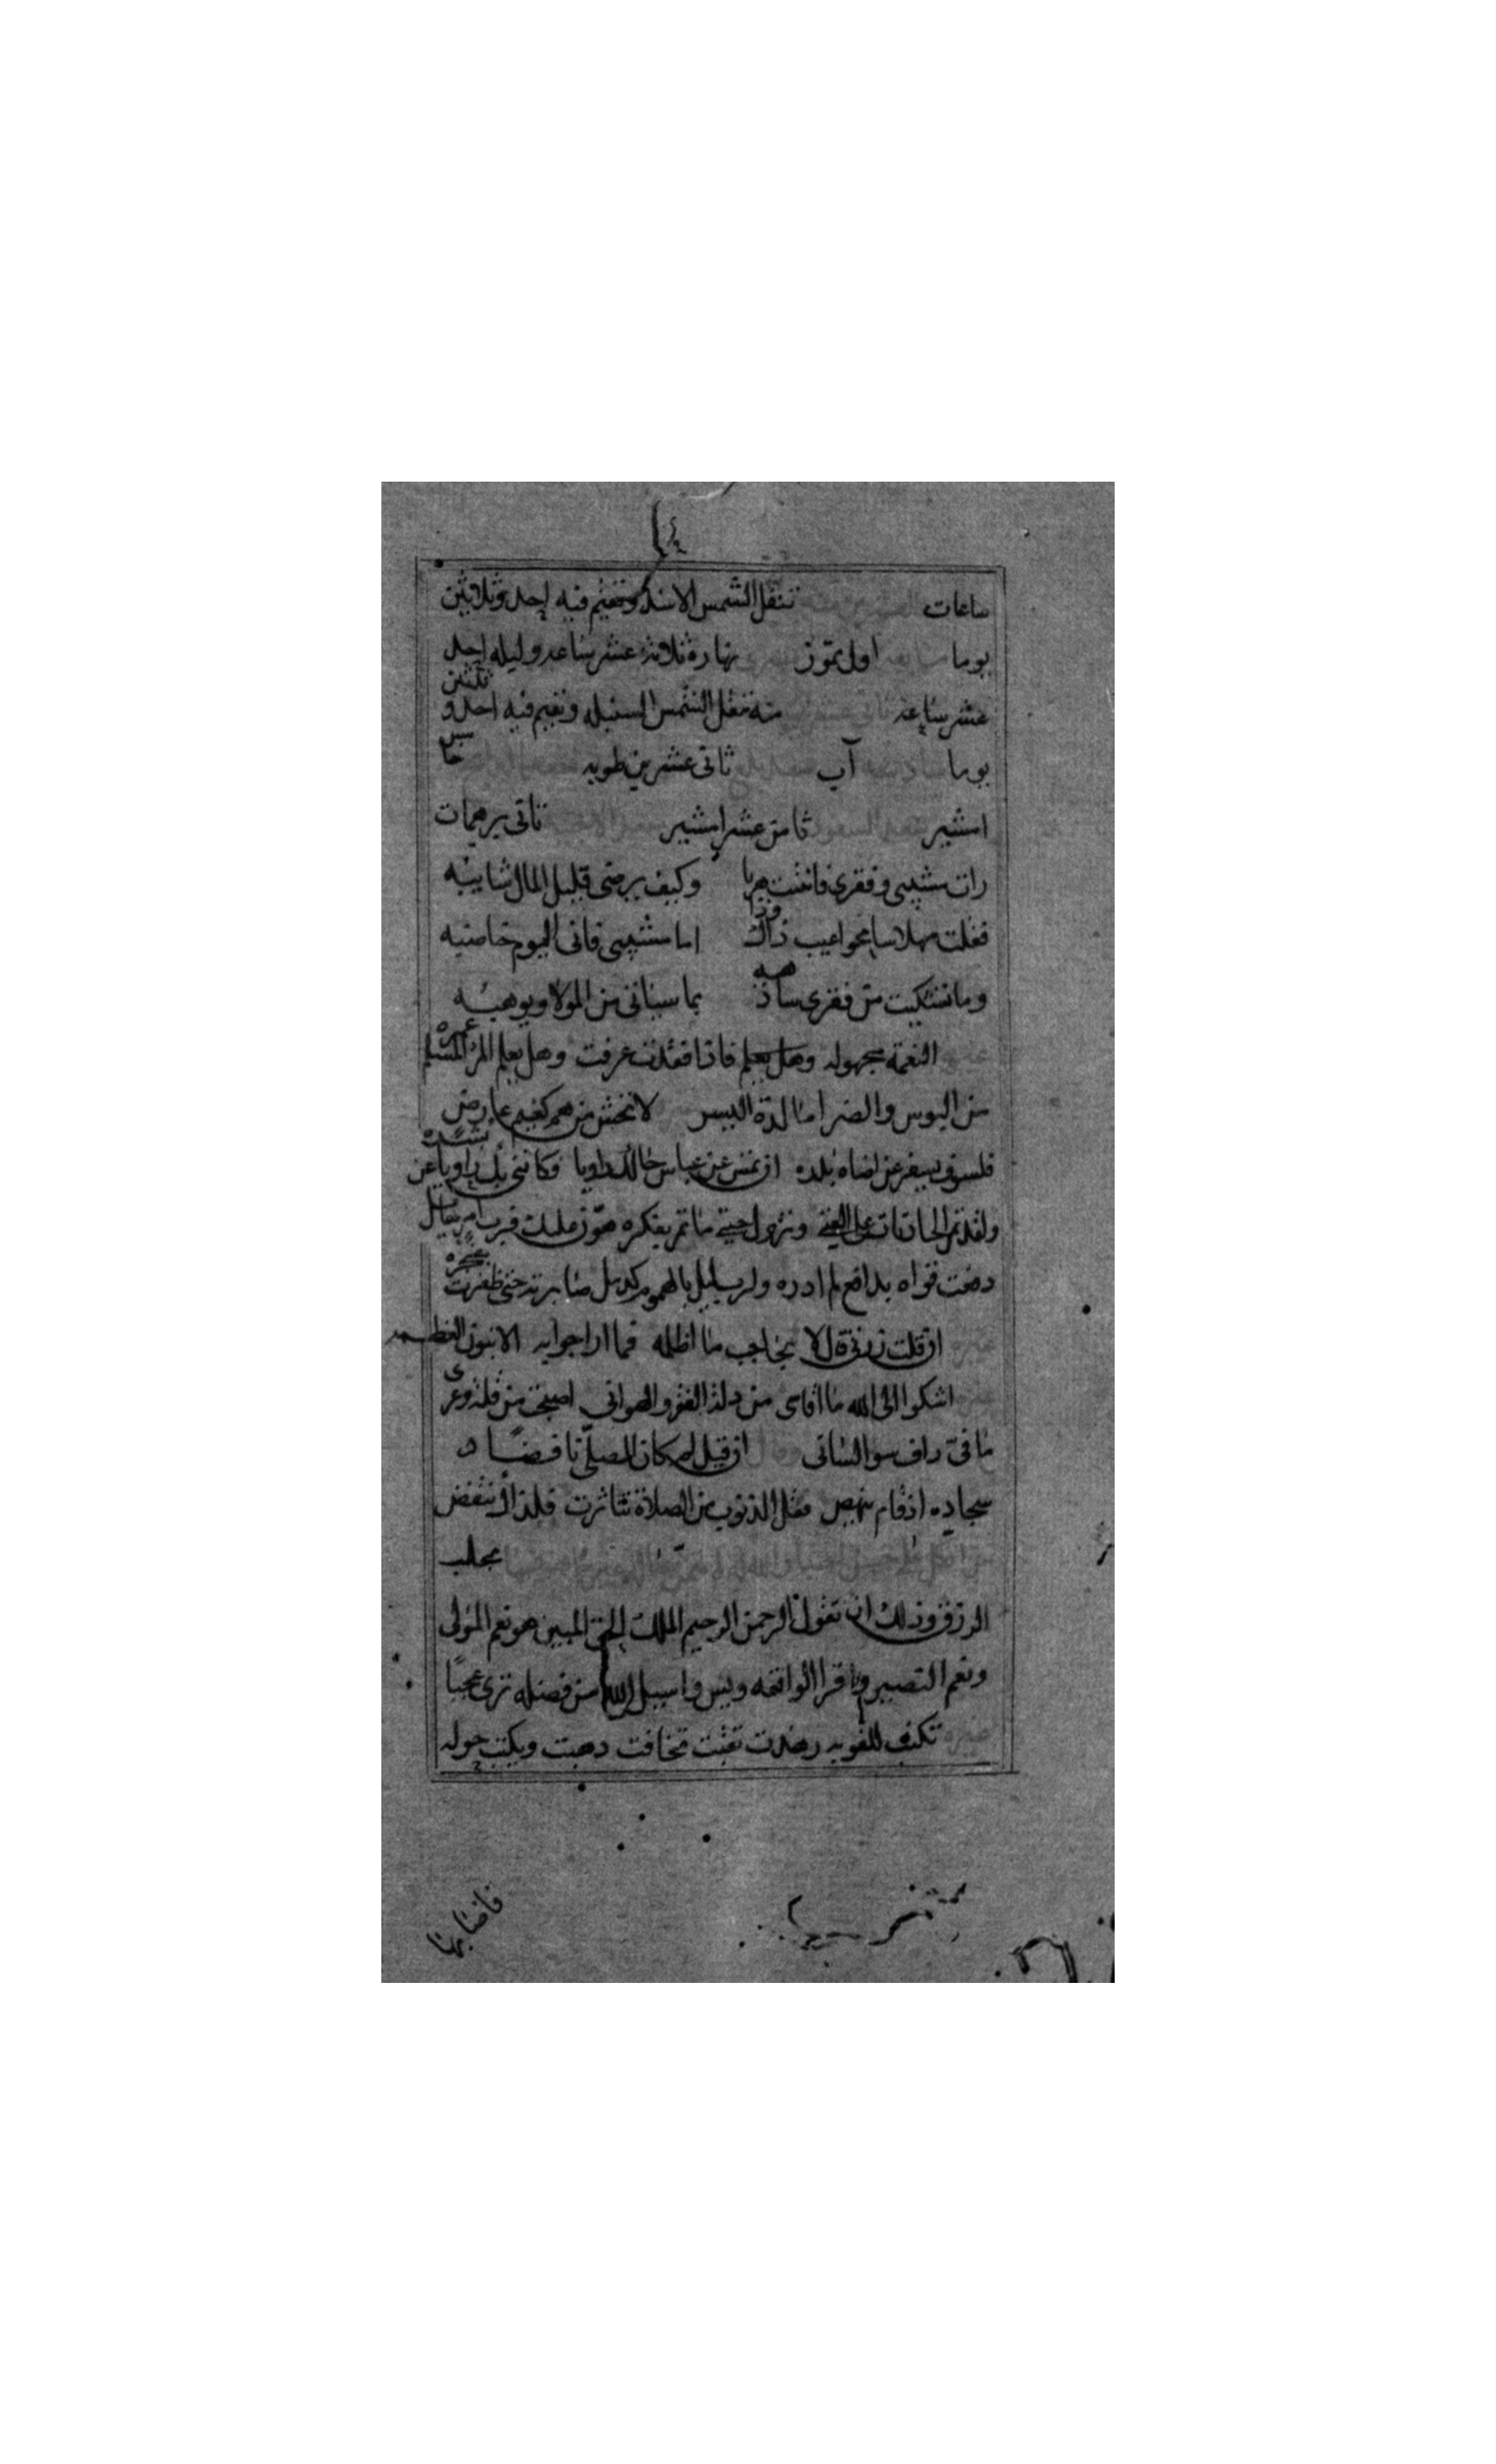 ساعات تنقل الشمس الاسد وتقيم فيه احد وثلاثين
يوما اول تموز نهاره ثلاثة عشر ساعه وليله احد
عشر ساعه منه تنقل الشمس السنبله وتقيم فيه احد و ثلثين
يوما آب ثانى عشرين طوبه خامس
امشير ثامن عشر امشير ثاني برمهات
رات شيبى وفقرى فانثنت هربا وكيف يرضى قليل المال شايبه
فقلت مهلا سامحوا عيب ذاك وذا اما مشيبى فانى اليوم خاضبه
وما شكيت من فقرى ساذهبه بما سياتى من المولا ويوهبه
النعمة مجهوله فاذا فقدت عرفت وهل يعلم المر المسلم عمره
من البوس والضر اما لذة اليسر لا تخش من هم كغيم عارض
فلسوف يسفر عن اضاه بدره ان تمس عن عباس حالك راويا فكاننى بك راويا عن بشره
ولقد تمر الحادثات على الفتى وتزول حتى ما تمر بفكره هون عليك فرب امر هايل
دفعت قواه بدافع لم ادره ولرب ليل بالهموم كدمل صابرته حتى ظفرت بفجره
ان قلت زرنى قال لا يخاف ما اظلمه فما ارا جوابه
اشكوا الى الله ما اقاسى من ذلة الفقر والهوانى اصبحت من قلة وعرى
ما فى داف سوا لسانى ان قيل لم كان المصلى نافضا
سجاده اذ قام ينهض فقل الذنوب من الصلاة تناثرت فلذاك تنفض
مجلب
الرزق وذلك ان تقول الرحمن الرحيم الملك الحق المبين هو نعم المولى
ونعم النصير واقرا الواقعه ويس واسيل الله من فضله ترى عجبا
تكتب للقوبه ذهبت ويكتب حوله